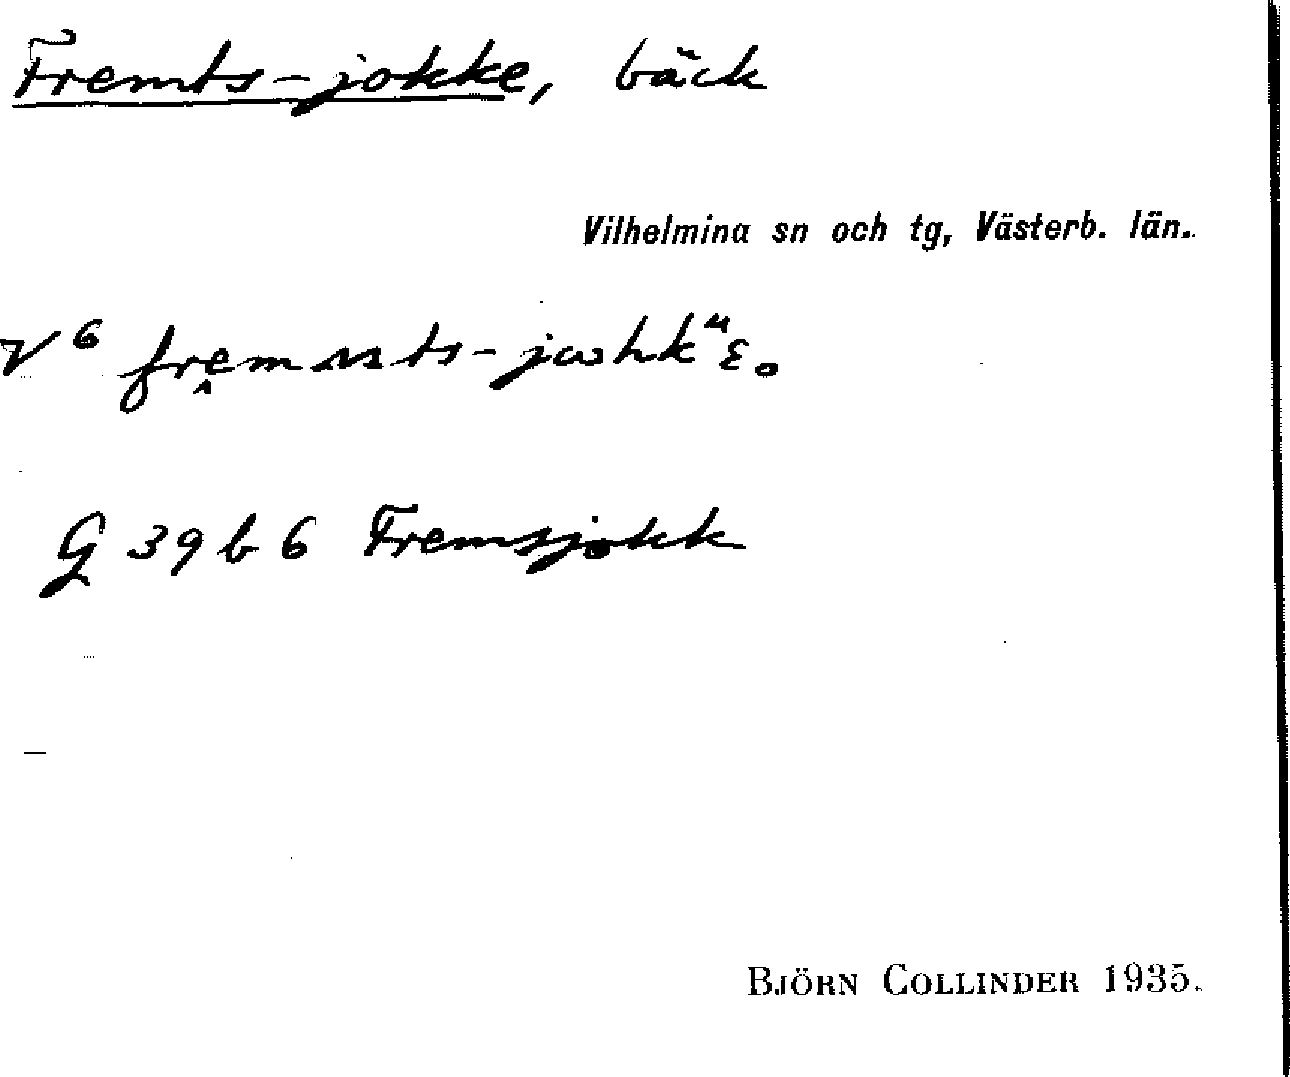 Fremts-jokke, bäck
Vilhelmina sn och tg, Västerb. län.
V⁶
G 39 b 6 Fremsjokk
BJÖRN COLLINDER 1935.